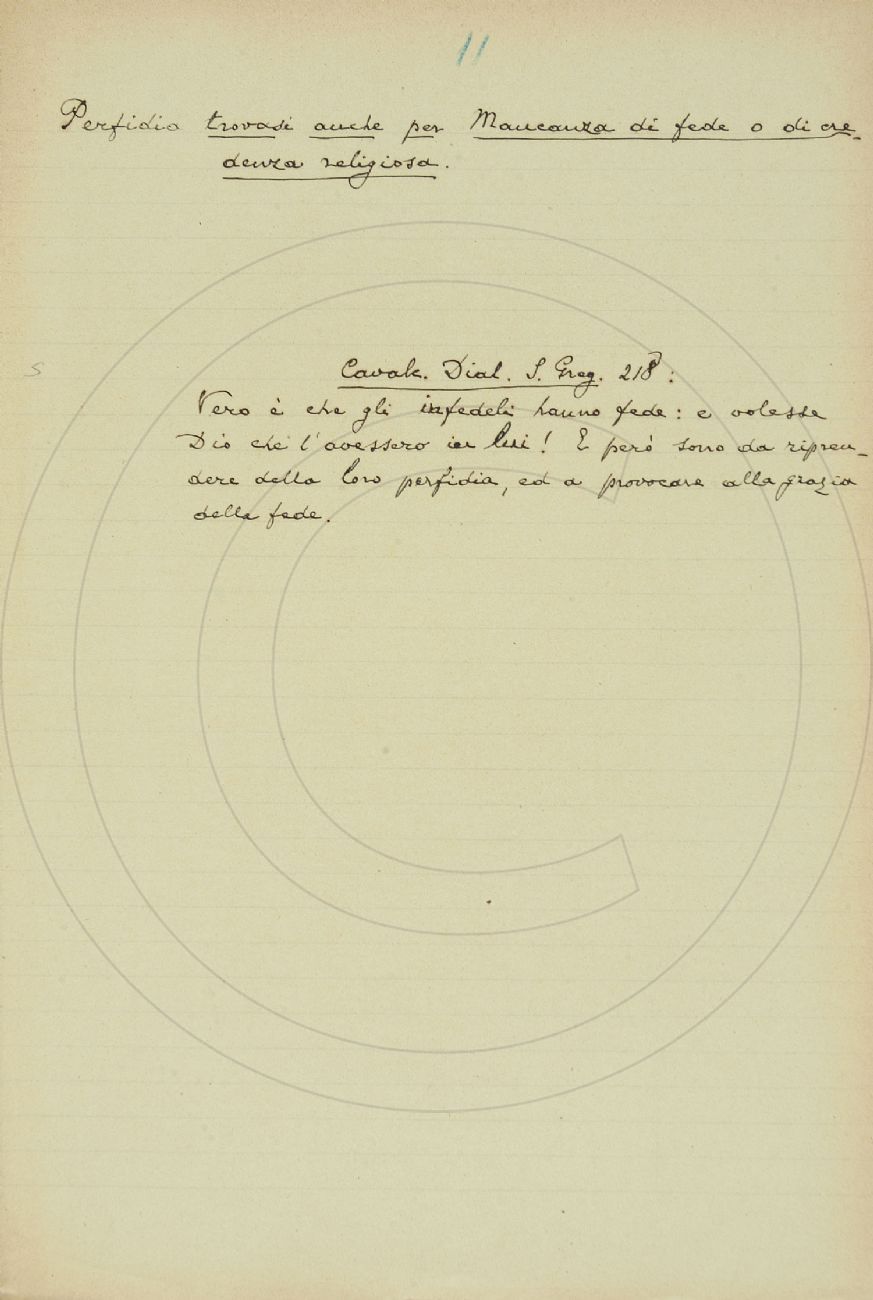 11
Perfidia trovasi anche per Mancanza di fede o di cre-
denza religiosa.
S
Cavalc. Dial. S. Greg. 218:
Vero è che gli infedeli hanno fede: e volesse
Dio che l'avessero in lui! E però sono da ripren-
dere della loro perfidia, ed a provocare alla grazia
della fede.